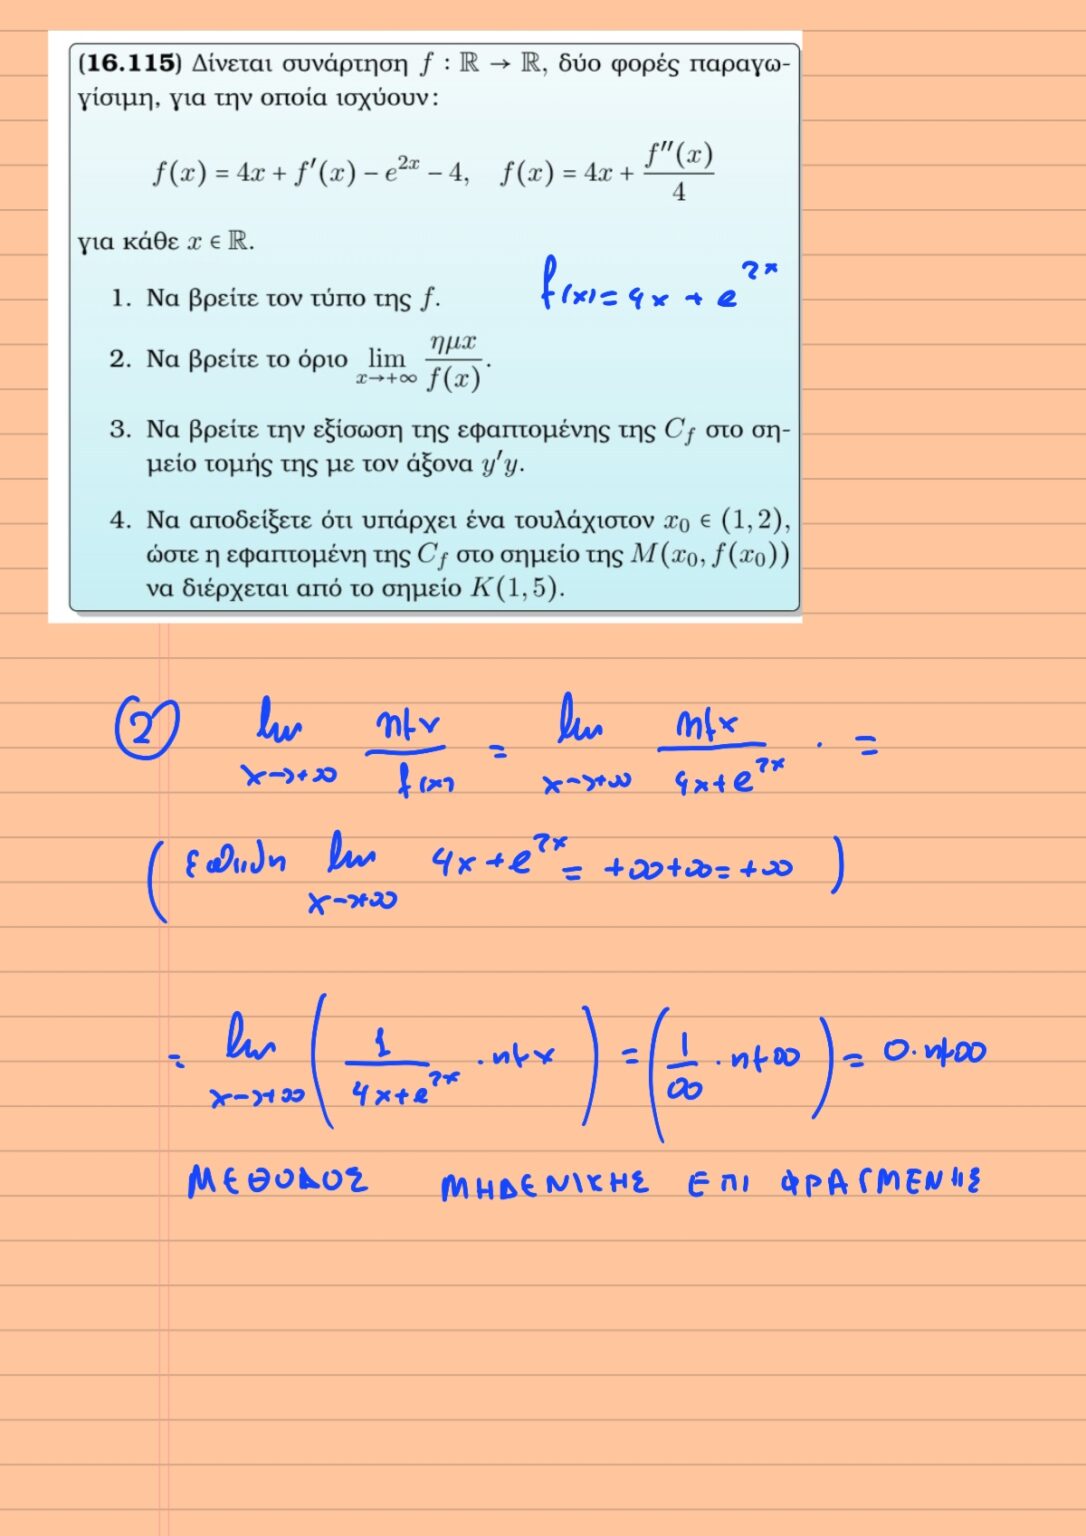 (16.115) Δίνεται συνάρτηση f : ℝ → ℝ, δύο φορές παραγω-
γίσιμη, για την οποία ισχύουν:
f(x) = 4x + f′(x) − e^{2x} − 4, f(x) = 4x + f″(x)/4
για κάθε x ∈ ℝ.
1. Να βρείτε τον τύπο της f. f(x) = 4x + e^{2x}
2. Να βρείτε το όριο lim_{x→+∞} ημx/f(x).
3. Να βρείτε την εξίσωση της εφαπτομένης της C_f στο ση-
μείο τομής της με τον άξονα y′y.
4. Να αποδείξετε ότι υπάρχει ένα τουλάχιστον x₀ ∈ (1, 2),
ώστε η εφαπτομένη της C_f στο σημείο της M(x₀, f(x₀))
να διέρχεται από το σημείο K(1, 5).
② lim_{x→+∞} ημx/f(x) = lim_{x→+∞} ημx/(4x+e^{2x}) · =
(επειδη lim_{x→+∞} 4x+e^{2x} = +∞+∞=+∞)
= lim_{x→+∞} (1/(4x+e^{2x}) · ημx) = (1/∞ · ημ∞) = 0·ημ∞
ΜΕΘΟΔΟΣ ΜΗΔΕΝΙΚΗΣ ΕΠΙ ΦΡΑΓΜΕΝΗΣ